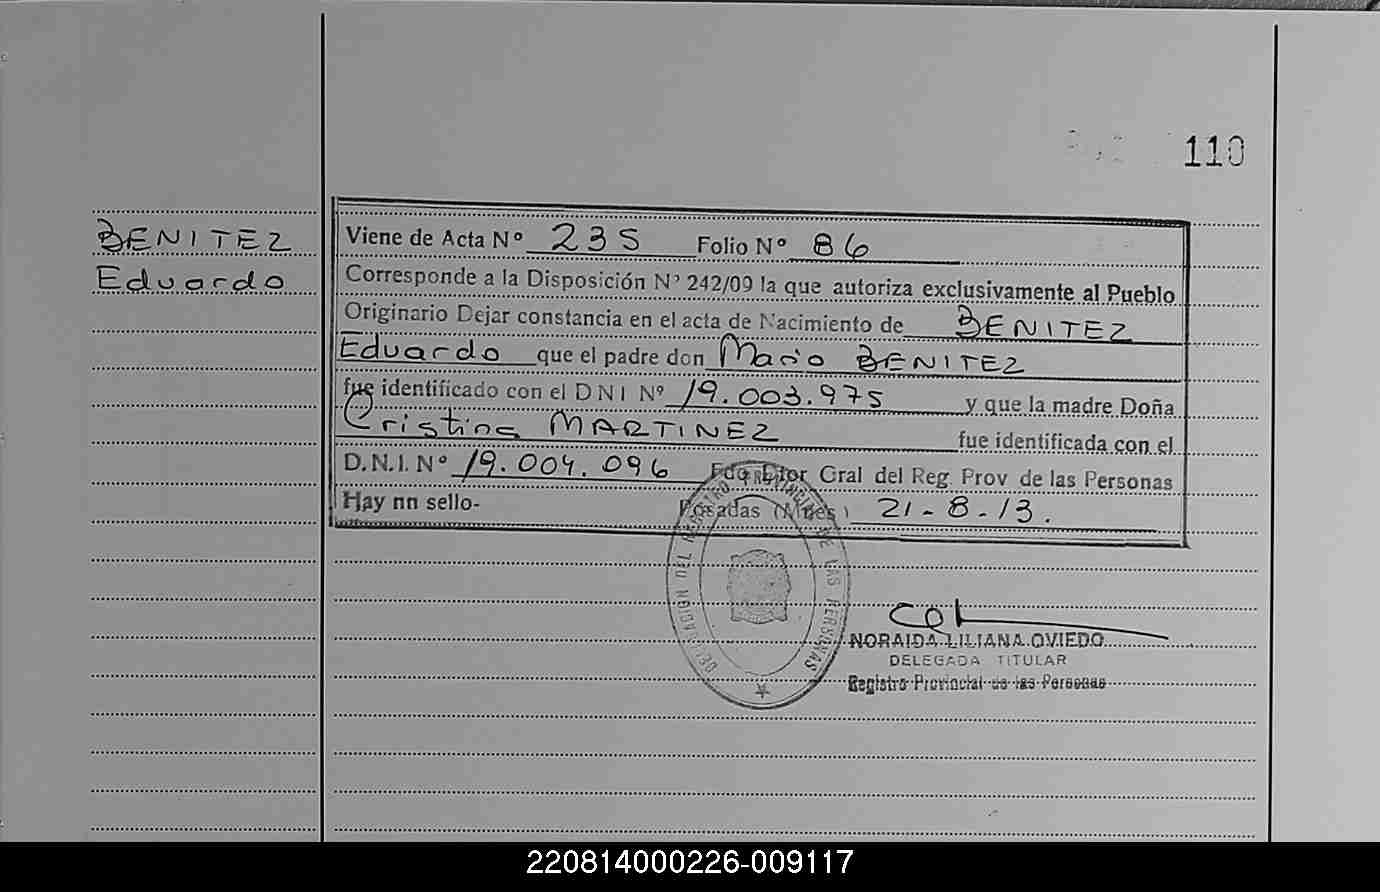 110
BENITEZ
Eduardo
Viene de Acta Nº 235 Folio Nº 86
Corresponde a la Disposición Nº 242/09 la que autoriza exclusivamente al Pueblo
Originario Dejar constancia en el acta de Nacimiento de BENITEZ
Eduardo que el padre don Mario BENITEZ
fue identificado con el DNI Nº 19.003.975 y que la madre Doña
Cristina MARTINEZ fue identificada con el
D.N.I. Nº 19.004.096 Fdo Dtor Gral del Reg Prov de las Personas
Hay nn sello- Posadas (Mnes) 21-8-13.
DELEGACION DEL REGISTRO PROVINCIAL DE LAS PERSONAS
NORAIDA LILIANA OVIEDO
DELEGADA TITULAR
Registro Provincial de las Personas
220814000226-009117